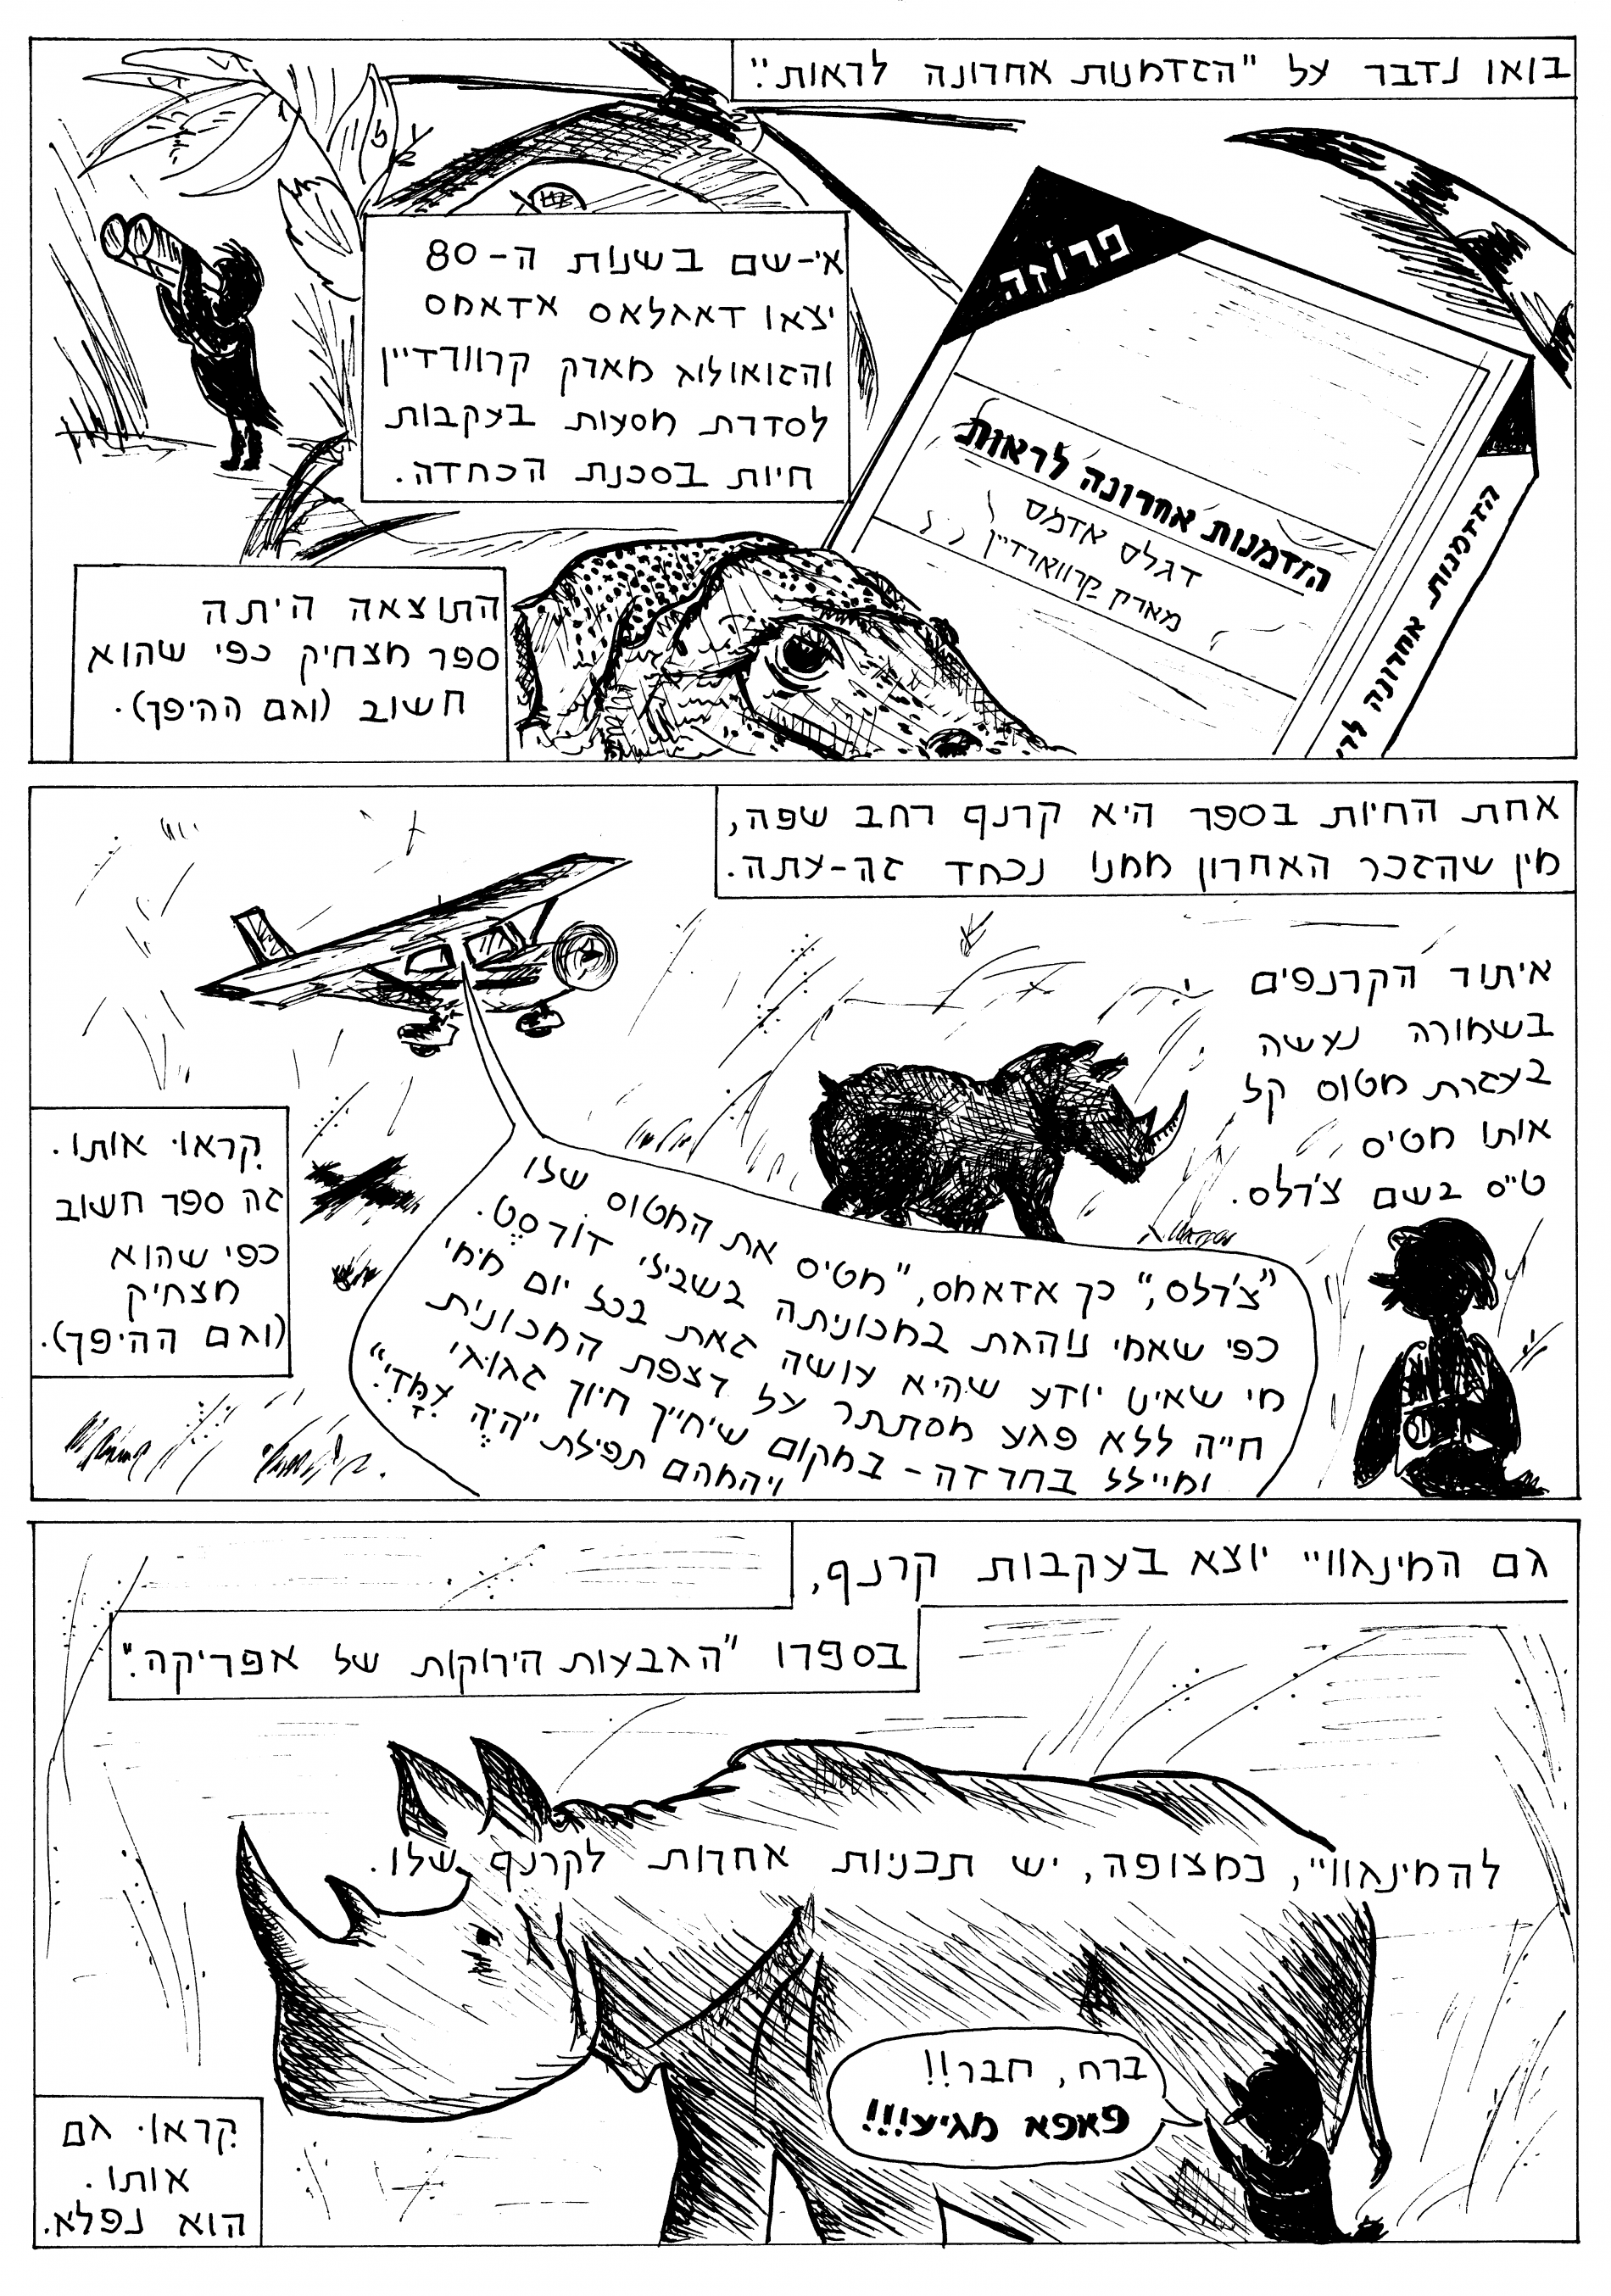 בואו נדבר על "הזדמנות אחרונה לראות".
אי-שם בשנות ה-80
יצאו דאגלאס אדאמס
והזואולוג מארק קרוורדיין
לסדרת מסעות בעקבות
חיות בסכנת הכחדה.
פרוֹזה
הזדמנות אחרונה לראות
דגלס אדמס
מארק קַרווארדיין
הזדמנות אחרונה לר
התוצאה היתה
ספר מצחיק כפי שהוא
חשוב (וגם ההיפך).
אחת החיות בספר היא קרנף רחב שפה,
מין שהזכר האחרון ממנו נכחד זה-עתה.
איתור הקרנפים
בשמורה נעשה
בעזרת מטוס קל
אותו מטיס
טייס בשם צ'רלס.
"צ'רלס", כך אדאמס, "מטיס את המטוס שלו
כפי שאמי נוהגת במכוניתה בשבילי דוֹרסֶט.
מי שאינו יודע שהיא עושה זאת בכל יום מימי
חייה ללא פגע מסתתר על רצפת המכונית
ומיילל בחרדה - במקום שיחייך חיוך זגוגי
ויהמהם תפילת "יהיֶה עִמָּדִי"."
קִראוּ אותו.
זה ספר חשוב
כפי שהוא
מצחיק
(וגם ההיפך).
גם המינגוויי יוצא בעקבות קרנף,
בספרו "הגבעות הירוקות של אפריקה".
להמינגוויי, כמצופה, יש תכניות אחרות לקרנף שלו.
ברח, חבר!!
פאפא מגיע!!!
קִראוּ גם
אותו.
הוא נפלא.